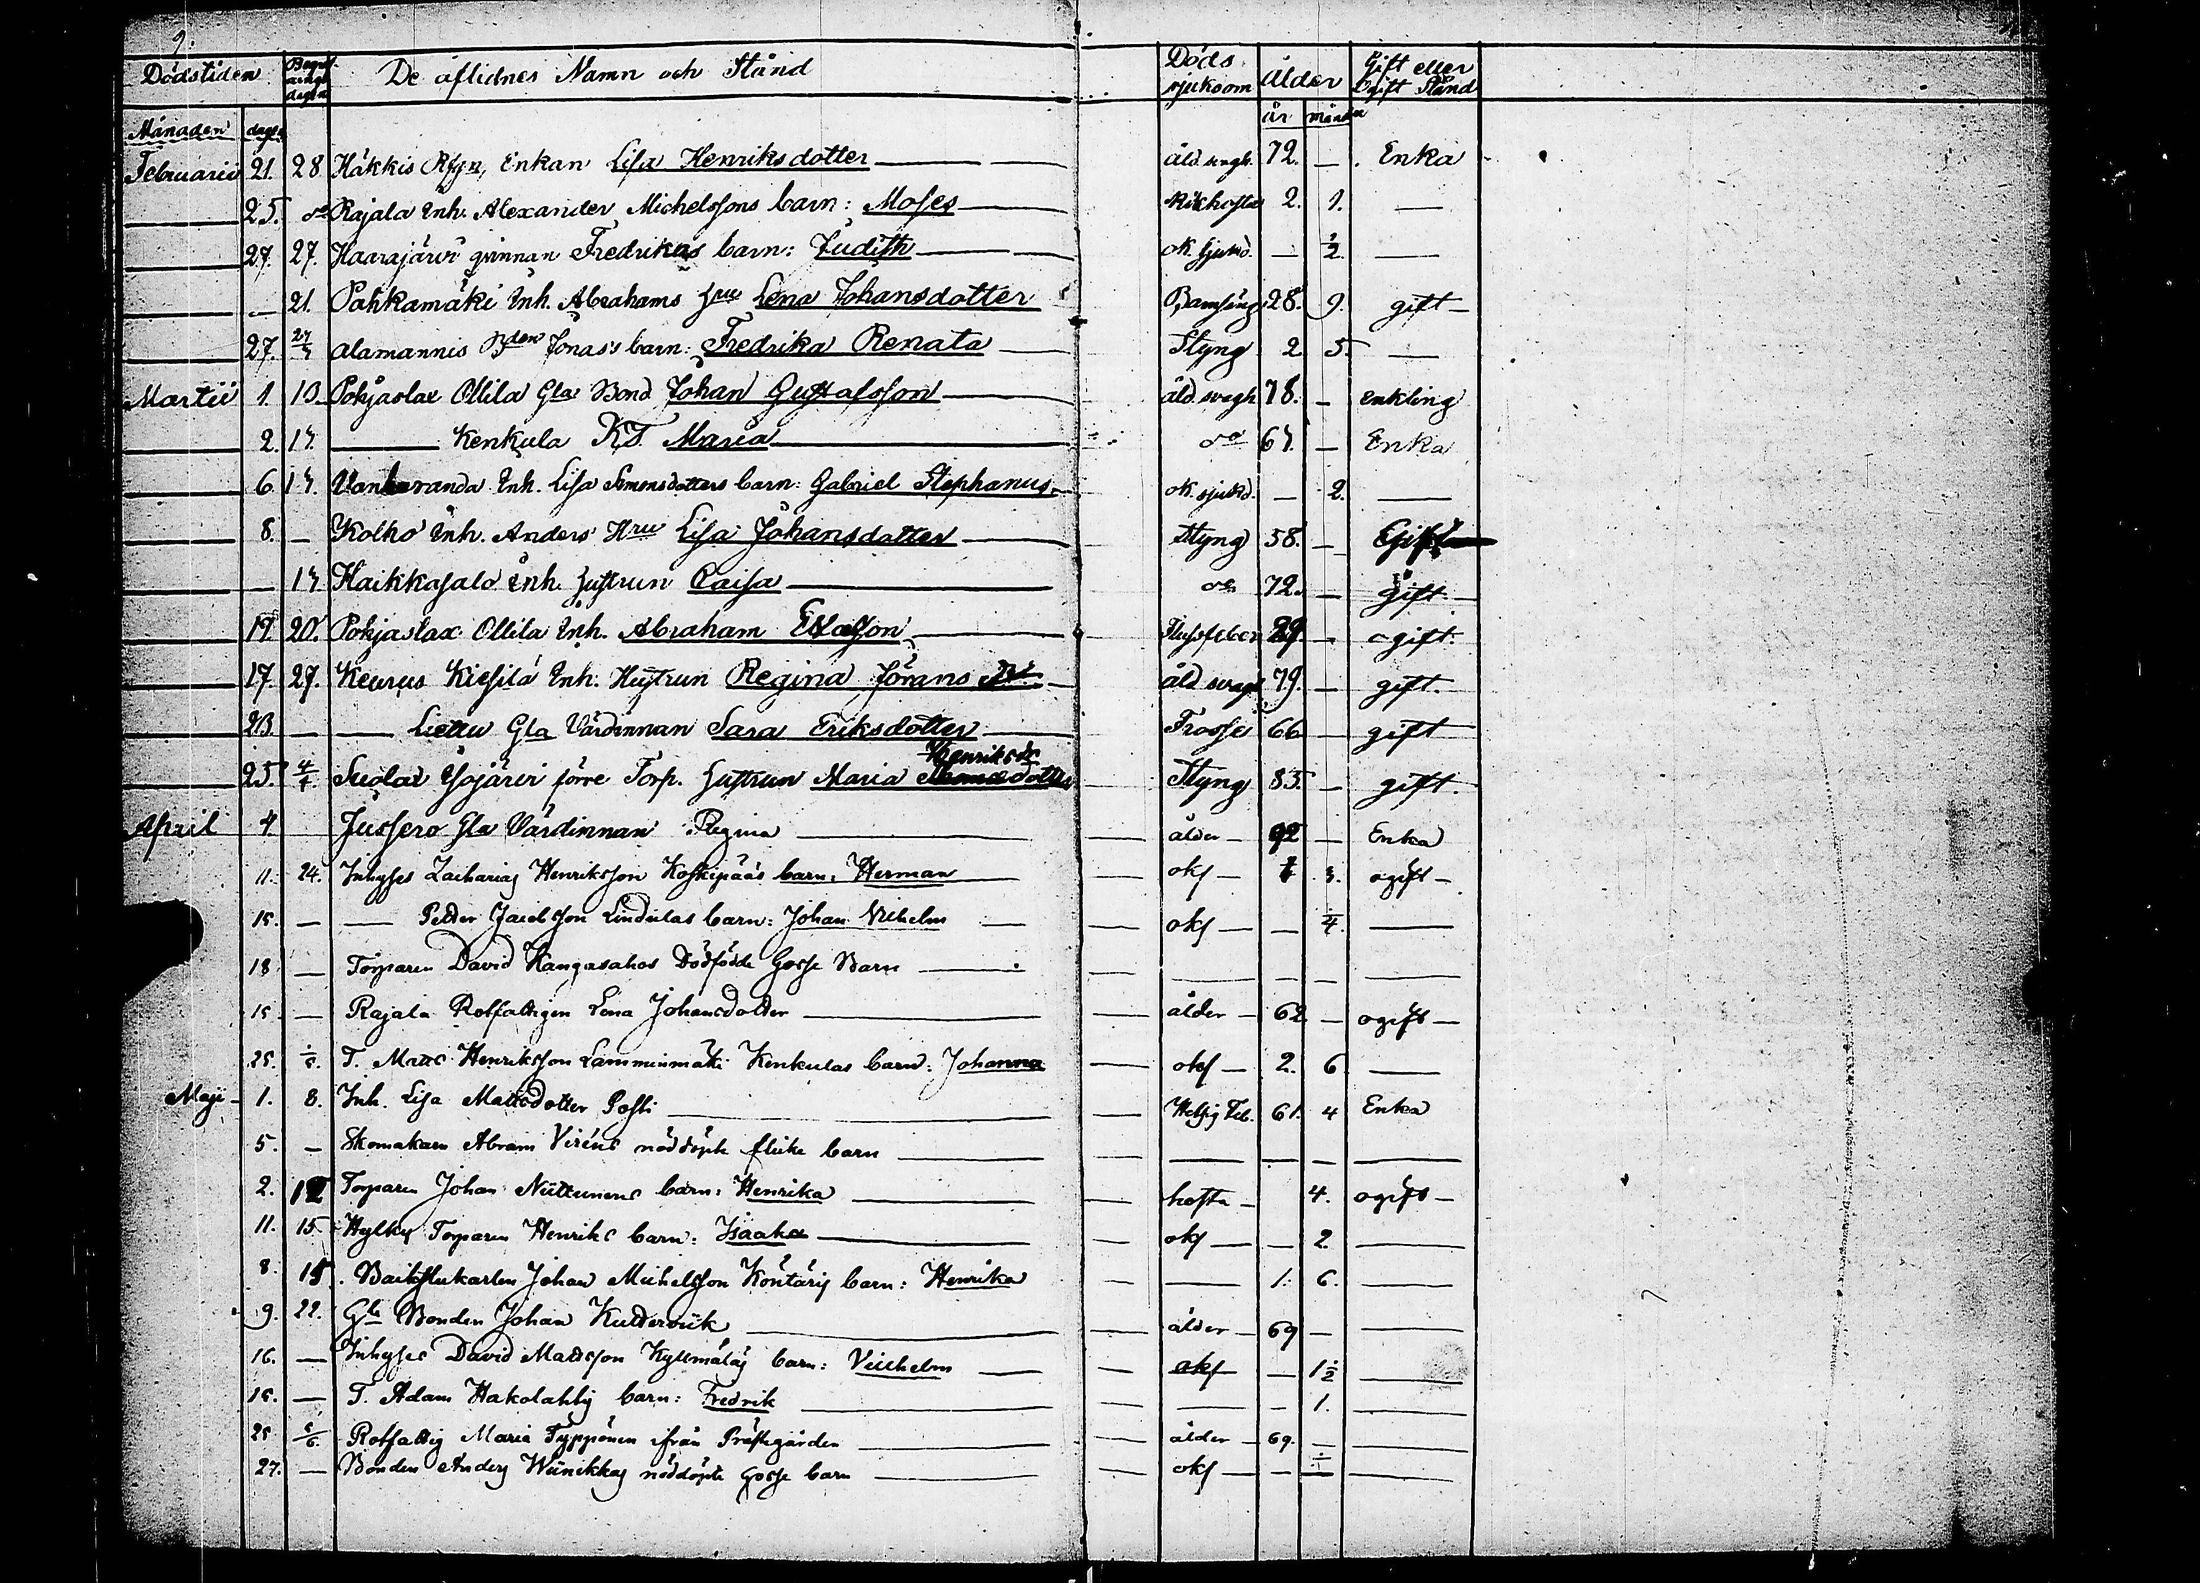 9.
Dödstiden Begrafnings dagen De aflidnes Namn och Stånd Döds sjukdom Ålder Gift eller Ogift Stånd
Månaden dagen år månader
Februarii 21. 28 Häkkis Enkan Lisa Henriksdotter åld. svagh. 72. — Enka
25. do Rajala Inh. Alexander Michelssons barn: Moses kikhosta 2. 1. —
27. 27. Haarajärvi qvinnan Fredrikas barn: Judith ok. sjukd. — ½ —
— 21. Pahkamäki Inh. Abrahams Hru Lena Johansdotter Barnsäng 28. 9. gift
27. Alamannis Bden Jonas's barn: Fredrika Renata Styng 2. 5. —
Martii 1. 13 Pohjaslax Ollila Gla Bond Johan Gustafsson åld. svagh 78. — enkling
2. 17. — Kenkula Maria do 67. — Enka
6 17. Inh. Lisa Simonsdotters barn: Gabriel Stephanus. ok. sjukd. — 2. —
8. — Kolho Inh. Anders Hru Lisa Johansdotter Styng 58. — Gift
— 17 Haikkasalo Inh. hustrun Caisa do 72. — gift
19. 20. Pohjaslax Ollila Inh. Abraham 29. — ogift.
17. 27. Keurus Kiesilä Inh. Hustrun Regina Jörans åld svagh 79. — gift.
23 — — Liettu Gla Värdinnan Sara Eriksdotter Trosse 66 — gift
25. 4/4 Suolax förre Torp. hustrun Maria Henriksdr Styng 83. — gift.
April 4 Jussero Gla Värdinnan Regina ålder 92 — Enka
11. 24. Inhyses Zacharias Henriksson Koskipääs barn: Herman oks — 3. ogift
15. — — Petter Jacobsson Lindulas barn: Johan Vilhelm oks — — ¼ —
18 — Torparen David Kangasahos Dödfödde Gosse Barn — — — —
15 — Rajala Rotfattigen Lena Johansdotter ålder 62 — ogift
25. T. Matts Henriksson Lamminmäki Kenkulas barn: Johanna oks — 2. 6 —
Maji 1. 8. Inh. Lisa Mattsdotter Posti Hetsig Feb. 61. 4 Enka
5. — Skomakarn Abram Viréns nöddöpte flicke barn — — — —
2. 12 Torparen Johan Niittunens barn: Henrika hosta — 4. ogift
11. 15. Hylkys Torparen Henriks barn: Isaaka oks — 2. —
8. 15. Backstukarlen Johan Michelsson Köntäris barn: Henrika — 1. 6. —
9. 22. Gla Bonden Johan Kulderoik ålder 69 — —
16. — Inhyses David Mattsson Kyllmäläs barn: Vilhelm oks — 1½ —
15. — T. Adam Hakolahtis barn: Fredrik — — 1. —
25 Rotfattig Maria Typpönen från Prästgården ålder 69. — —
27. — Bonden Anders nöddöpte gosse barn oks — — —